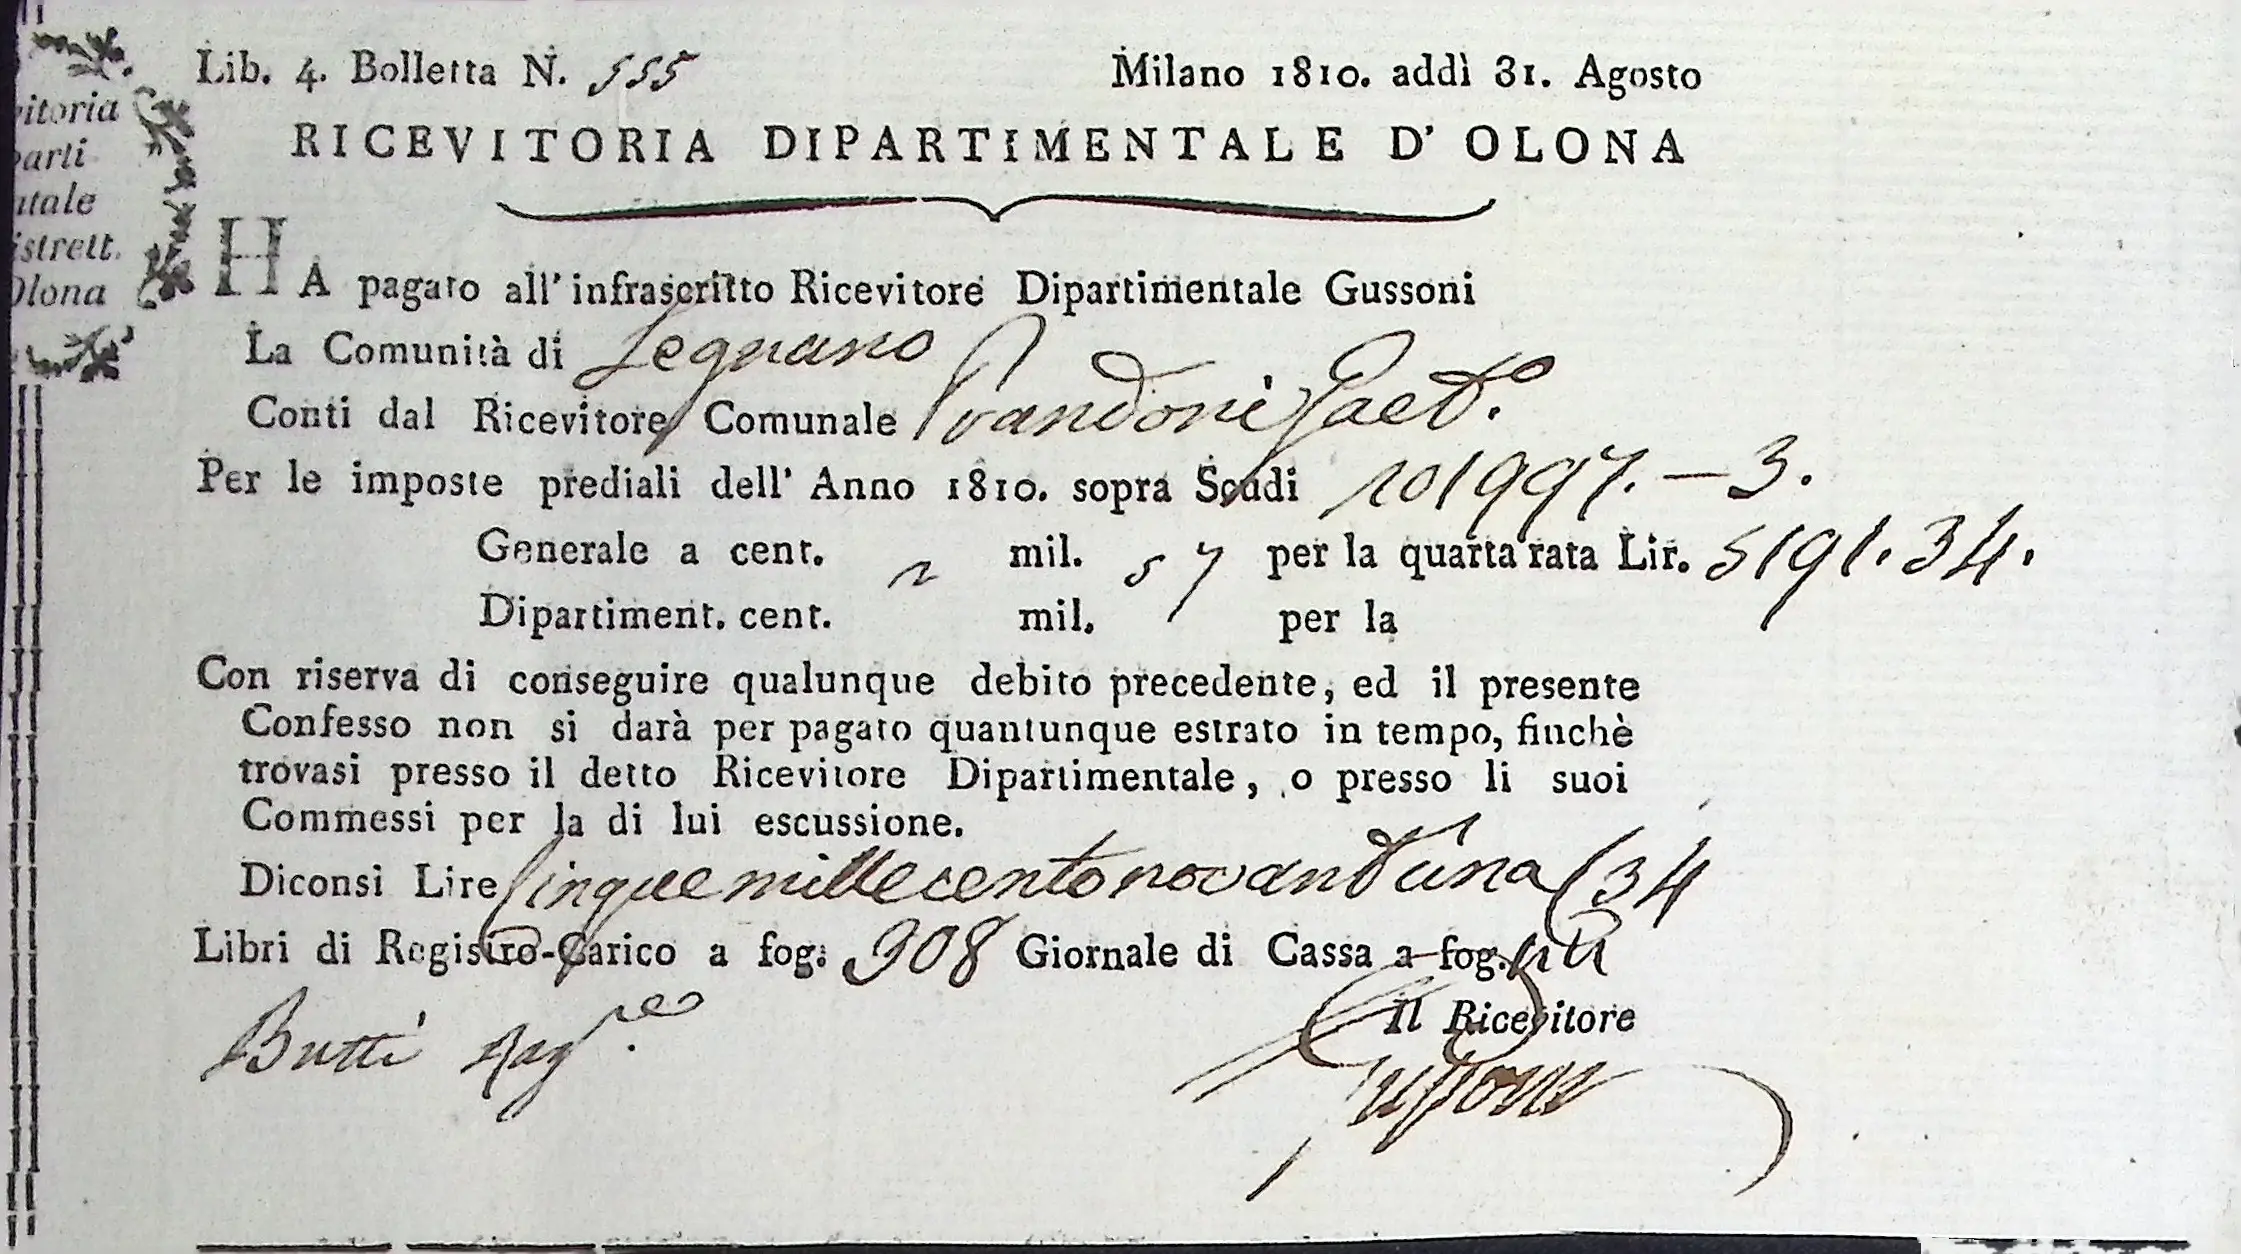 Lib. 4. Bolletta N. 555 Milano 1810. addì 31. Agosto
RICEVITORIA DIPARTIMENTALE D' OLONA
itoria
parti
ntale
istrett.
Olona
HA pagato all' infrascritto Ricevitore Dipartimentale Gussoni
La Comunità di Legnano
Conti dal Ricevitore Comunale Prandoni Gaet.o
Per le imposte prediali dell' Anno 1810. sopra Scudi 101997. – 3.
Generale a cent. 2 mil. 57 per la quarta rata Lir. 5191. 34.
Dipartiment. cent. mil. per la
Con riserva di conseguire qualunque debito precedente, ed il presente
Confesso non si darà per pagato quantunque estrato in tempo, finchè
trovasi presso il detto Ricevitore Dipartimentale, o presso li suoi
Commessi per la di lui escussione.
Diconsi Lire Cinquemillecentonovant'una 34
Libri di Registro-Carico a fog: 308 Giornale di Cassa a fog.
Il Ricevitore
Butti Rag.re
Gussoni